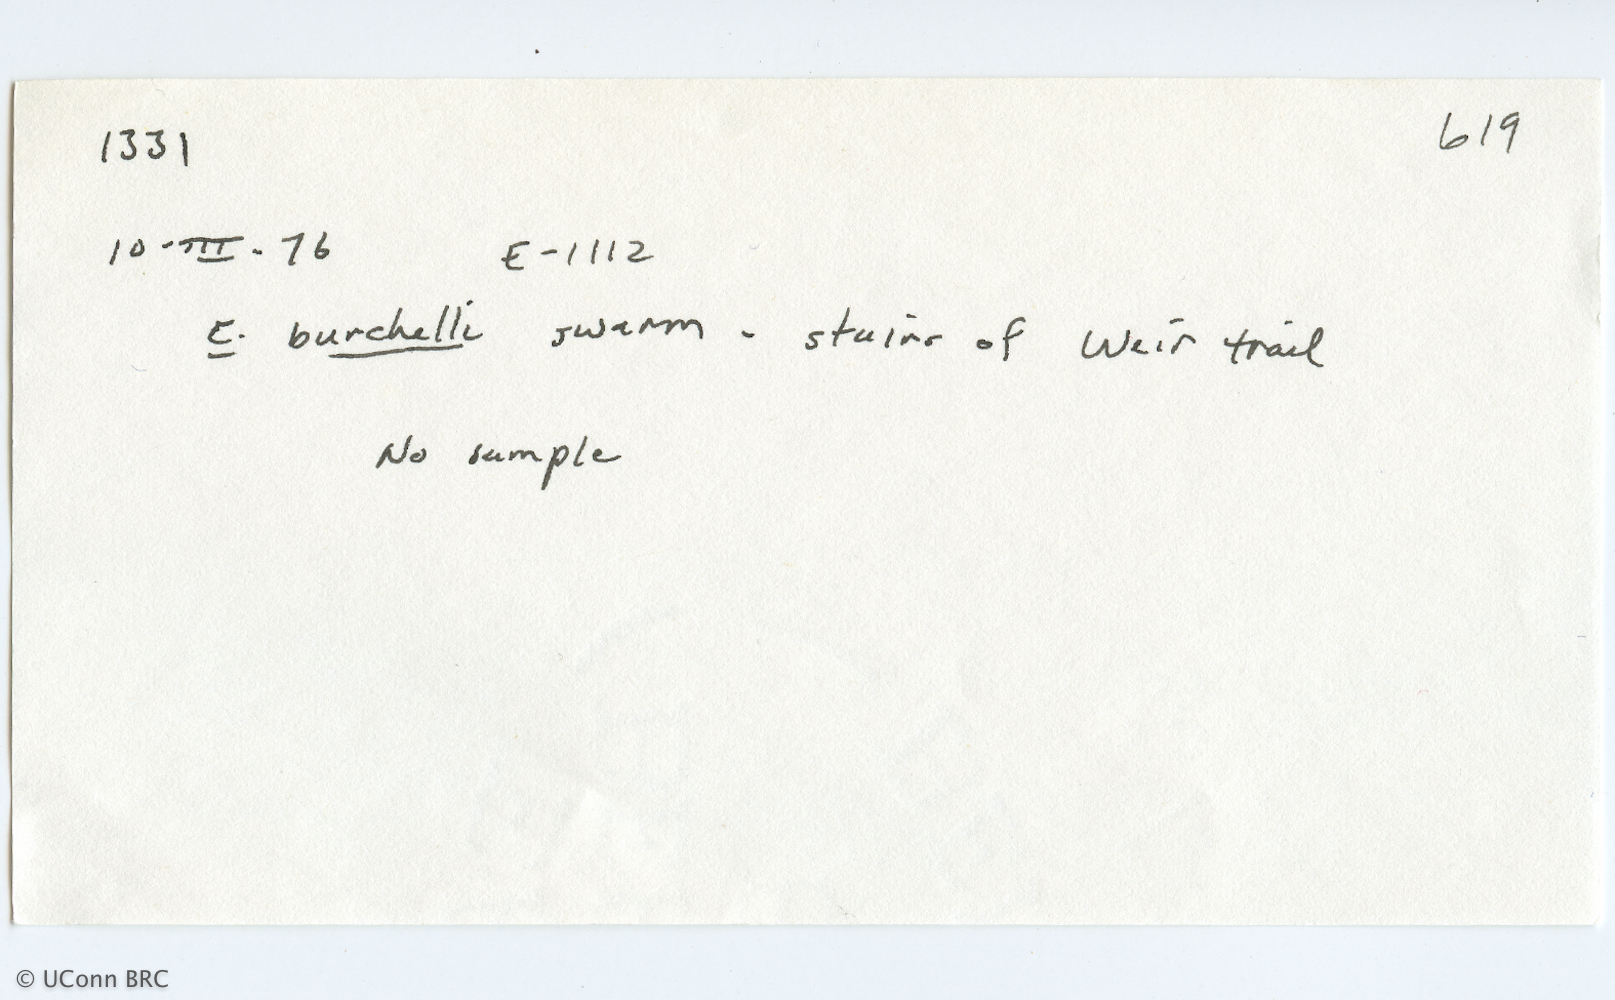 1331 619
10-III-76 E-1112
E. burchelli swarm - stairs of Weir trail
No sample
© UConn BRC